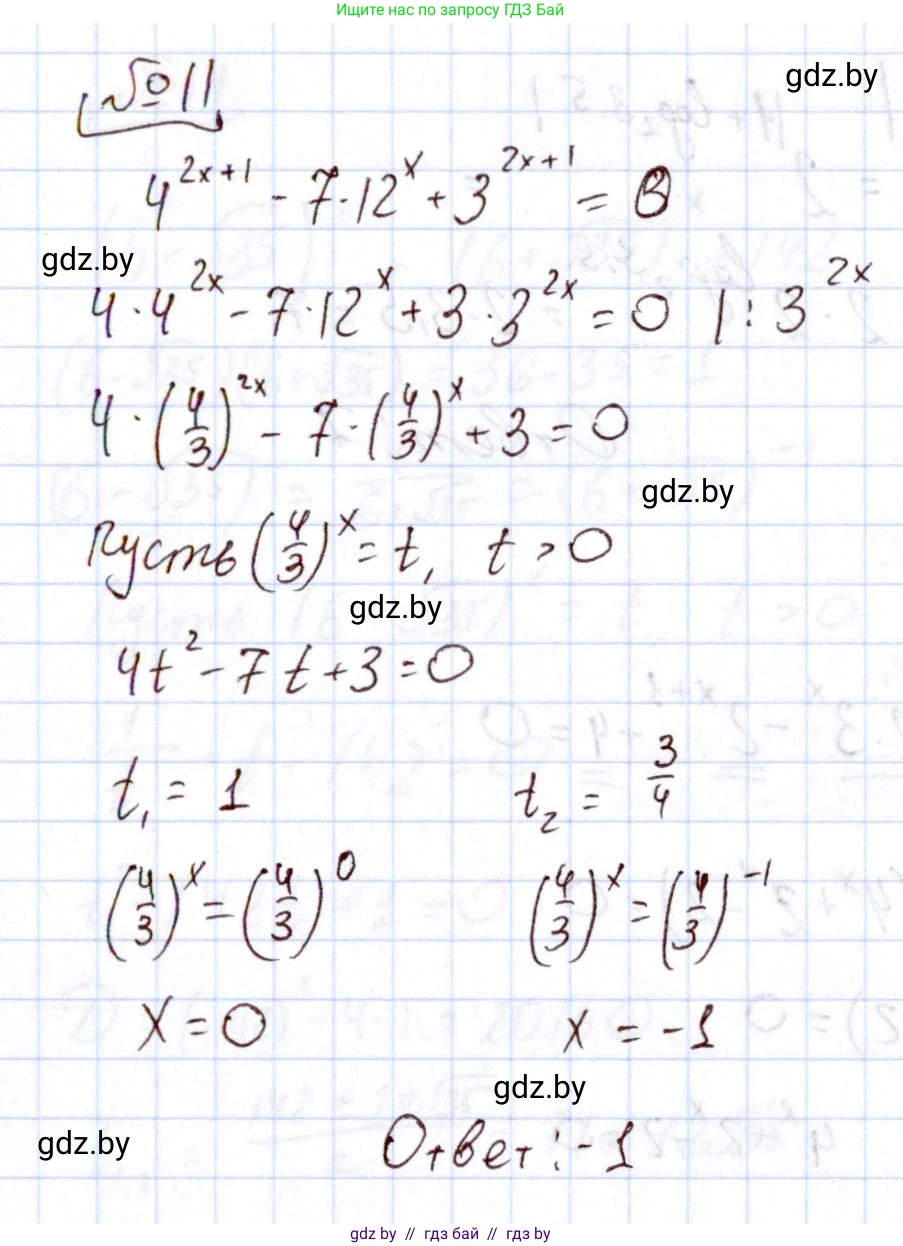 Ищите нас по запросу ГДЗ Бай
№11
gdz.by
4^{2x+1} - 7·12^x + 3^{2x+1} = 0
gdz.by
4·4^{2x} - 7·12^x + 3·3^{2x} = 0 |: 3^{2x}
4·(4/3)^{2x} - 7·(4/3)^x + 3 = 0
gdz.by
Пусть (4/3)^x = t, t > 0
gdz.by
4t² - 7t + 3 = 0
t₁ = 1 t₂ = 3/4
(4/3)^x = (4/3)^0 (4/3)^x = (4/3)^{-1}
x = 0 x = -1
gdz.by
gdz.by
Ответ: -1
gdz.by // гдз бай // gdz.by